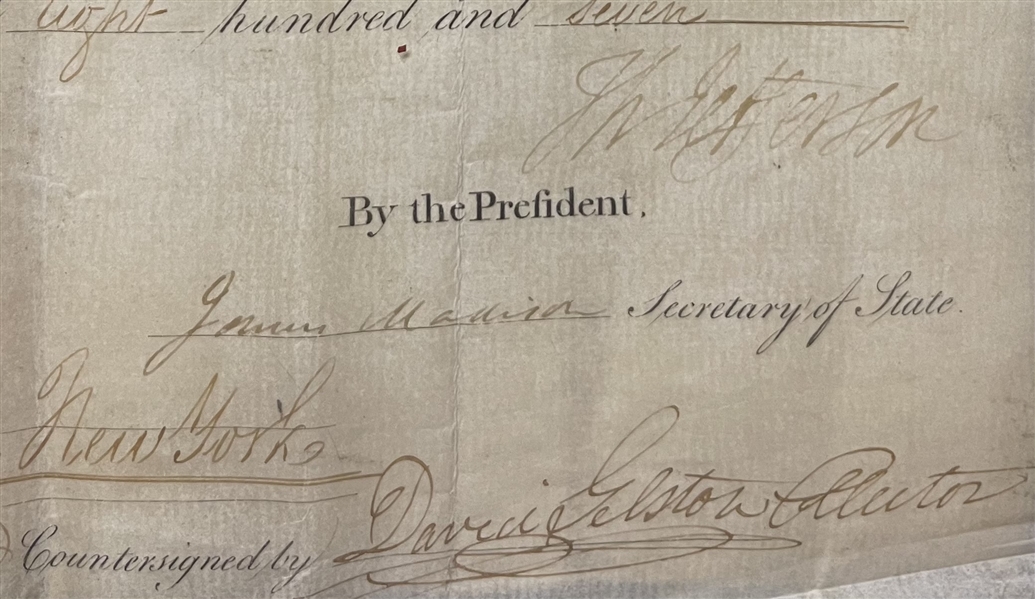 eight hundred and seven
Th Jefferson
By the Preſident,
James Madison Secretary of State.
New York
Countersigned by David Gelston Collector